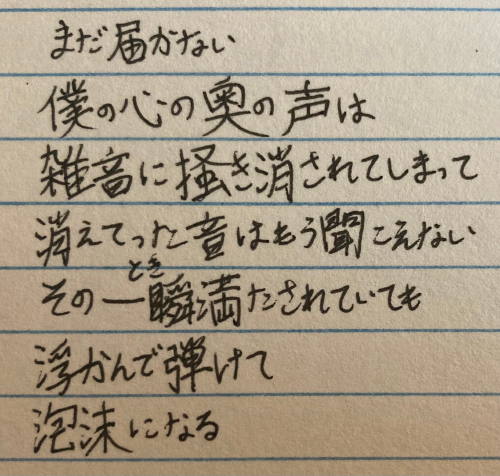 まだ届かない
僕の心の奥の声は
雑音に掻き消されてしまって
消えてった音はもう聞こえない
とき
その一瞬満たされていても
浮かんで弾けて
泡沫になる